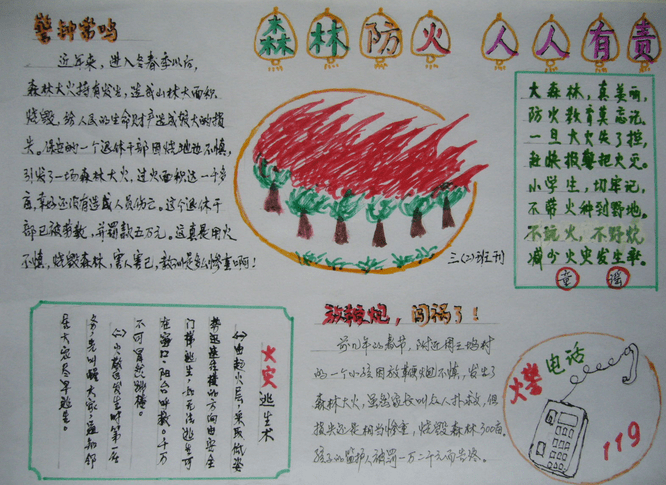 森林防火 人人有责
警钟常鸣
近年来，进入冬春季以后，
森林大火时有发生，造成山林大面积
烧毁，给人民的生命财产造成很大的损
失。保安的一个退休干部因烧地边不慎，
引发了一场森林大火，过火面积达一千多
亩，幸好还没有造成人员伤亡。这个退休干
部已被拘散，并罚款五万元，这真是用火
不慎，烧毁森林，害人害己，教训是多么惨重啊！
三(2)班刊
大森林，真美丽，
防火教育莫忘记，
一旦大火失了控，
赶快报警把火灭。
小学生，切牢记，
不带火种到野地。
不玩火，不野炊，
减少火灾发生率。
童谣
火灾逃生术
(一)由起火层，采取低姿
势迅速往楼的方向由安全
门梯逃生，如无法逃生可
在窗口、阳台呼救。千万
不可冒然跳楼。
(二)火警发生时第一层
务，先叫醒大家，通知邻
居大家及早逃生。
放鞭炮，闯祸了！
前几年的春节，附近周三坞村
的一个小孩因放鞭炮不慎，发生了
森林大火，虽然家长叫众人扑救，但
损失还是相当惨重，烧毁森林300亩，
孩子的监护人被罚一万二千元而告终。
火警电话
119